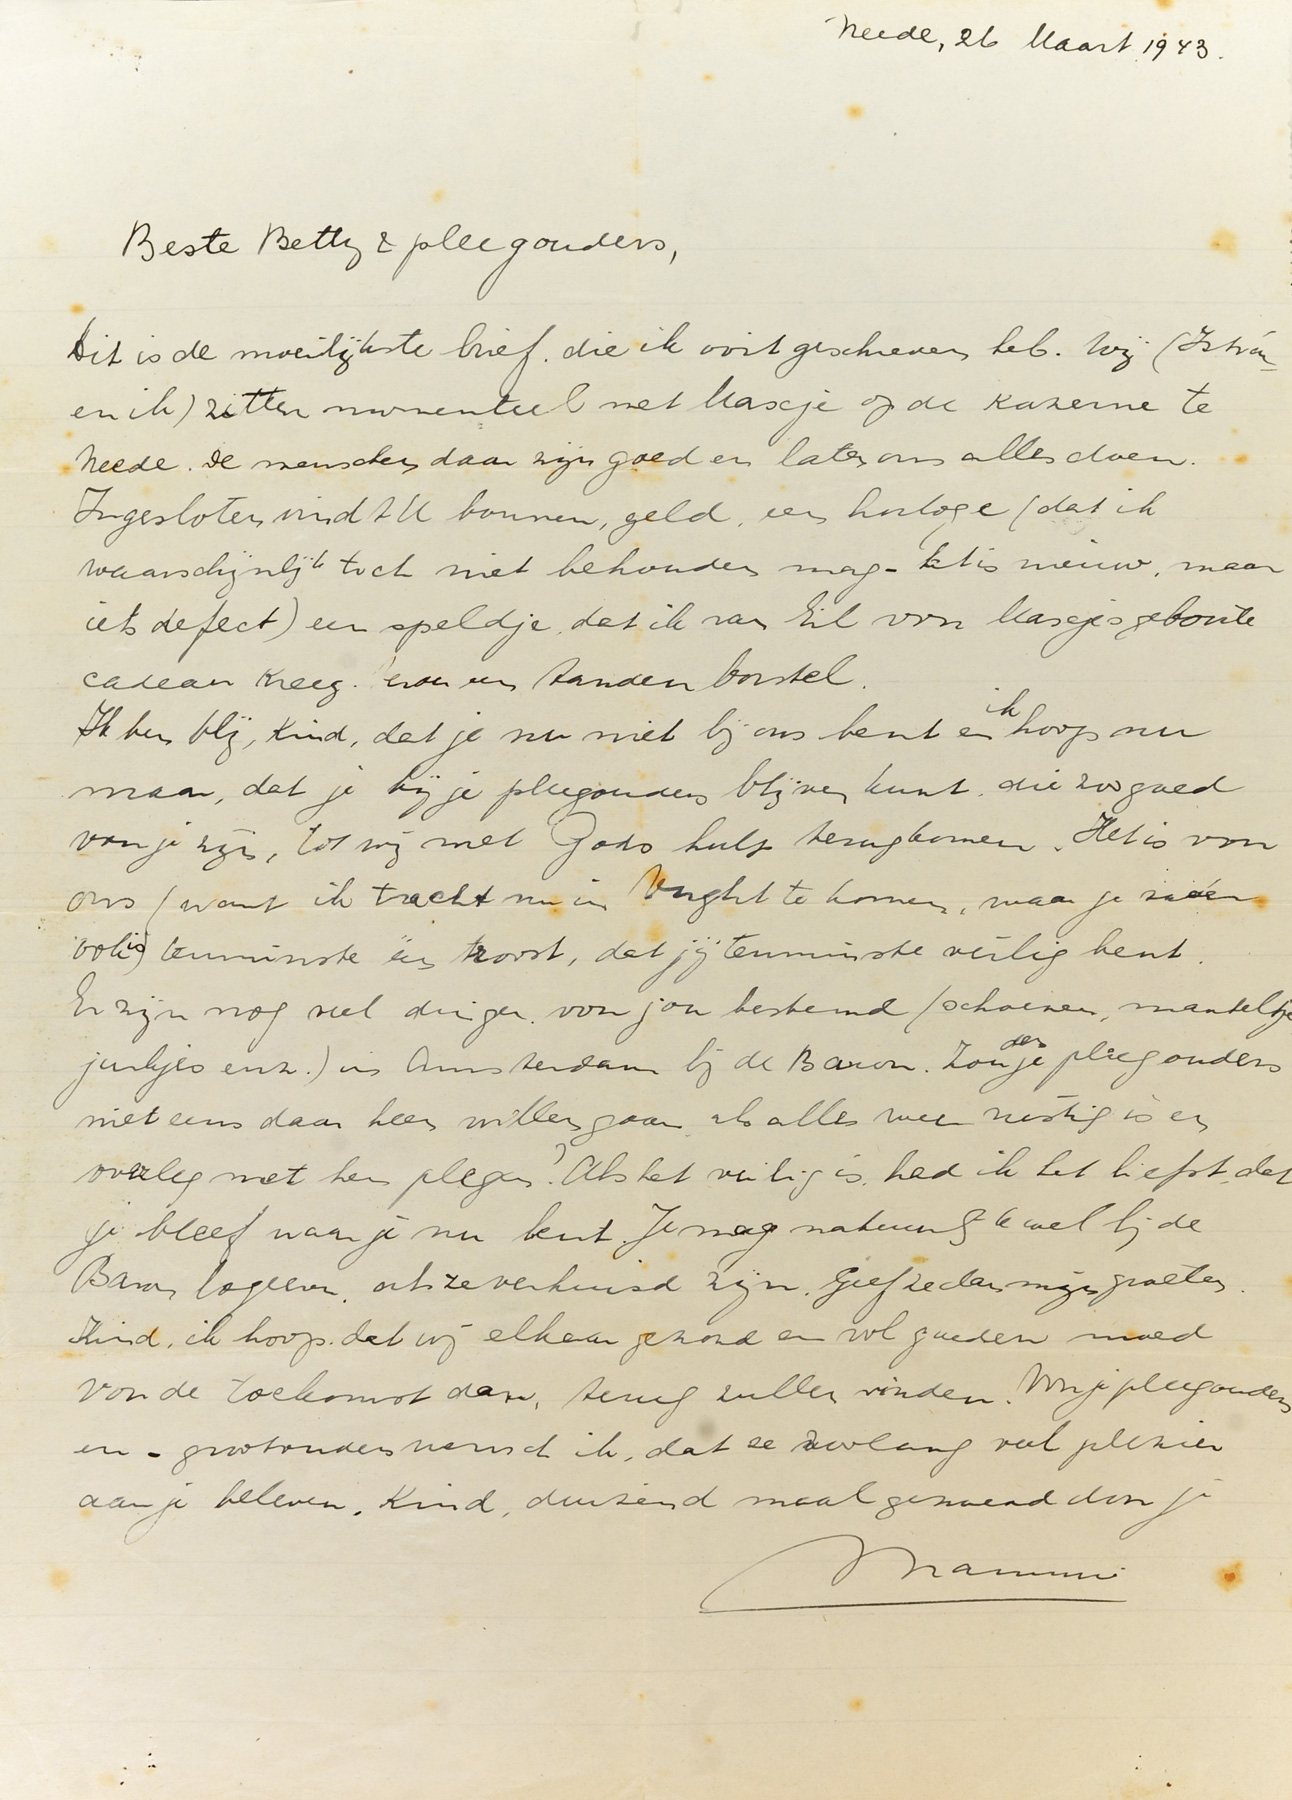 Neede, 26 Maart 1943.
Beste Betty & pleegouders,
Dit is de moeilijkste brief, die ik ooit geschreven heb. Wij (István
en ik) zitten momenteel met Maxje op de kazerne te
Neede. De menschen daar zijn goed en laten ons alles doen.
Ingesloten vindt U bonnen, geld, een horloge (dat ik
waarschijnlijk toch niet behouden mag - het is nieuw, maar
iets defect) een speldje, dat ik van voor Maxjes geboorte
cadeau kreeg. een tandenborstel.
Ik ben blij, kind, dat je nu niet bij ons bent en ik hoop nu
maar, dat je bij je pleegouders blijven kunt, die zoo goed
voor je zijn, tot wij met Gods hulp terugkomen. Het is voor
ons (want ik tracht nu in Vught te komen, waar je vader
ook is) tenminste een troost, dat jij tenminste veilig bent.
Er zijn nog veel dingen voor jou bestemd (schoenen, manteltje
jurkjes enz.) in Amsterdam bij de Baron. Zouden je pleegouders
niet eens daar heen willen gaan, als alles weer rustig is en
overleg met hen plegen? Als het veilig is, had ik het liefst, dat
je bleef waar je nu bent. Je mag natuurlijk wel bij de
Baron logeeren, als ze verhuisd zijn. Geef ze dan mijn groeten.
Kind, ik hoop, dat wij elkaar gezond en vol goeden moed
voor de toekomst dan, terug zullen vinden. Voor je pleegouders
en - grootouders wensch ik, dat ze zoolang veel plezier
aan je beleven. Kind, duizend maal gezoend door je
Mammi